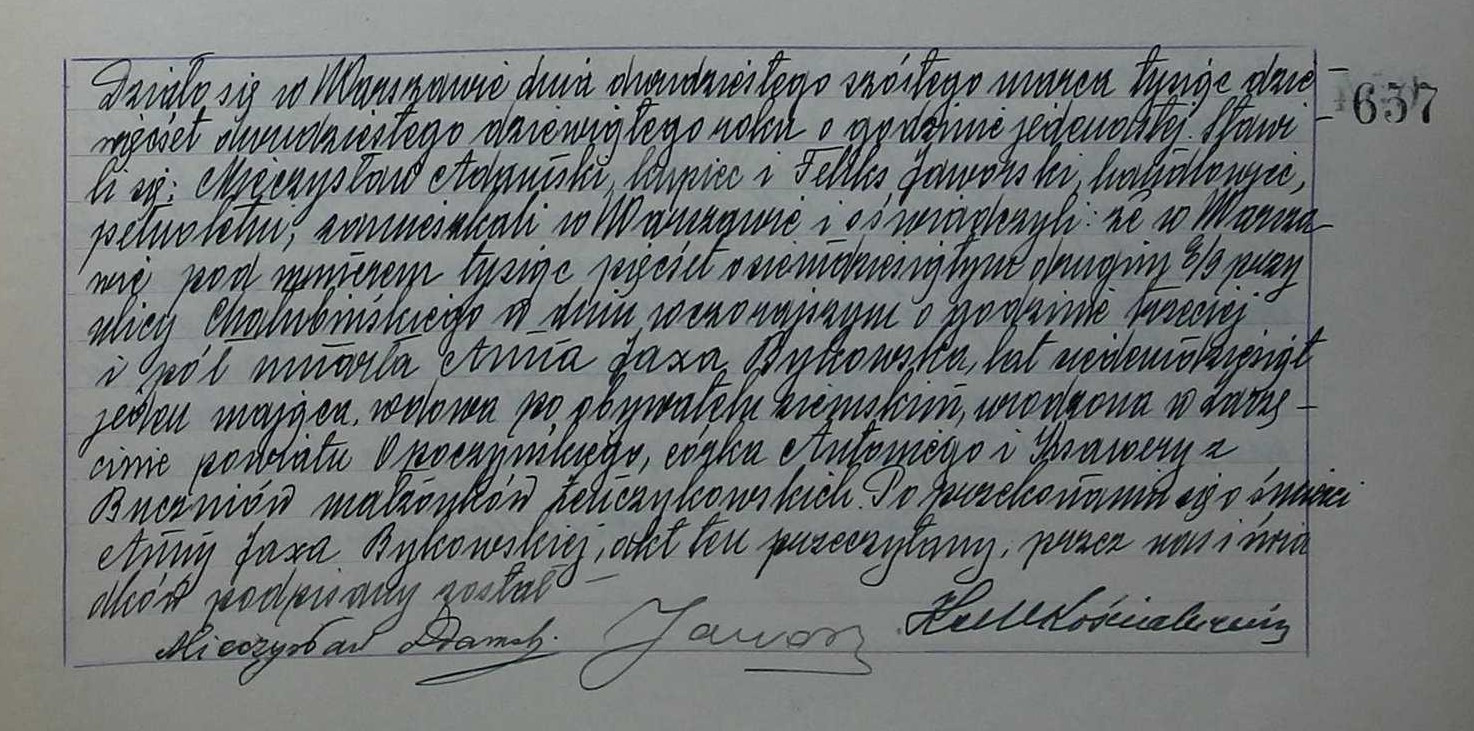 Działo się w Warszawie dnia dwudziestego szóstego marca tysiąc dzie-
więćset dwudziestego dziewiątego roku o godzinie jedenastej. Stawi-
li się: Mieczysław Adamski, kupiec i Feliks Jaworski, handlowiec,
pełnoletni, zamieszkali w Warszawie i oświadczyli: że w Warsza-
wie pod numerem tysiąc pięćset osiemdziesiątym drugim E/9 przy
ulicy Chałubińskiego w dniu wczorajszym o godzinie trzeciej
i pół umarła Anna Jaxa Bykowska, lat siedemdziesiąt
jeden mająca, wdowa po obywatelu ziemskim, urodzona w Zarzę-
cinie powiatu Opoczyńskiego, córka Antoniego i Ksawery z
małżonków Żeńczykowskich. Po przekonaniu się o śmierci
Anny Jaxa Bykowskiej, akt ten przeczytany, przez nas i świa
dków podpisany został –
Mieczysław Adamski. Jawor
657